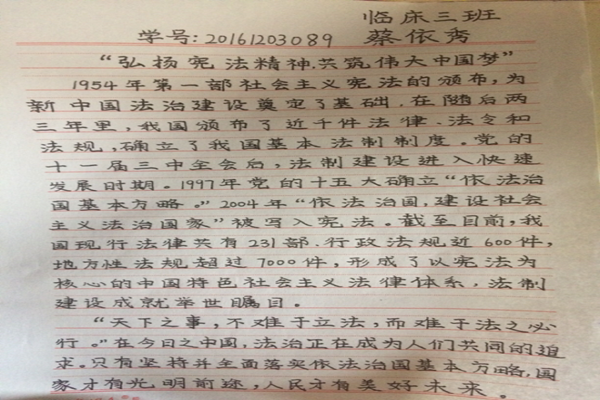 临床三班
学号:20161203089 蔡依秀
“弘扬宪法精神,共筑伟大中国梦”
1954年第一部社会主义宪法的颁布,为
新中国法治建设奠定了基础.在随后两
三年里,我国颁布了近千件法律、法令和
法规,确立了我国基本法制制度。党的
十一届三中全会后,法制建设进入快速
发展时期。1997年党的十五大确立“依法治
国基本方略。”2004年“依法治国,建设社会
主义法治国家”被写入宪法。截至目前,我
国现行法律共有231部.行政法规近600件,
地方性法规超过7000件,形成了以宪法为
核心的中国特色社会主义法律体系,法制
建设成就举世瞩目。
“天下之事,不难于立法,而难于法之必
行。”在今日之中国,法治正在成为人们共同的追
求。只有坚持并全面落实依法治国基本方略,国
家才有光明前途,人民才有美好未来。